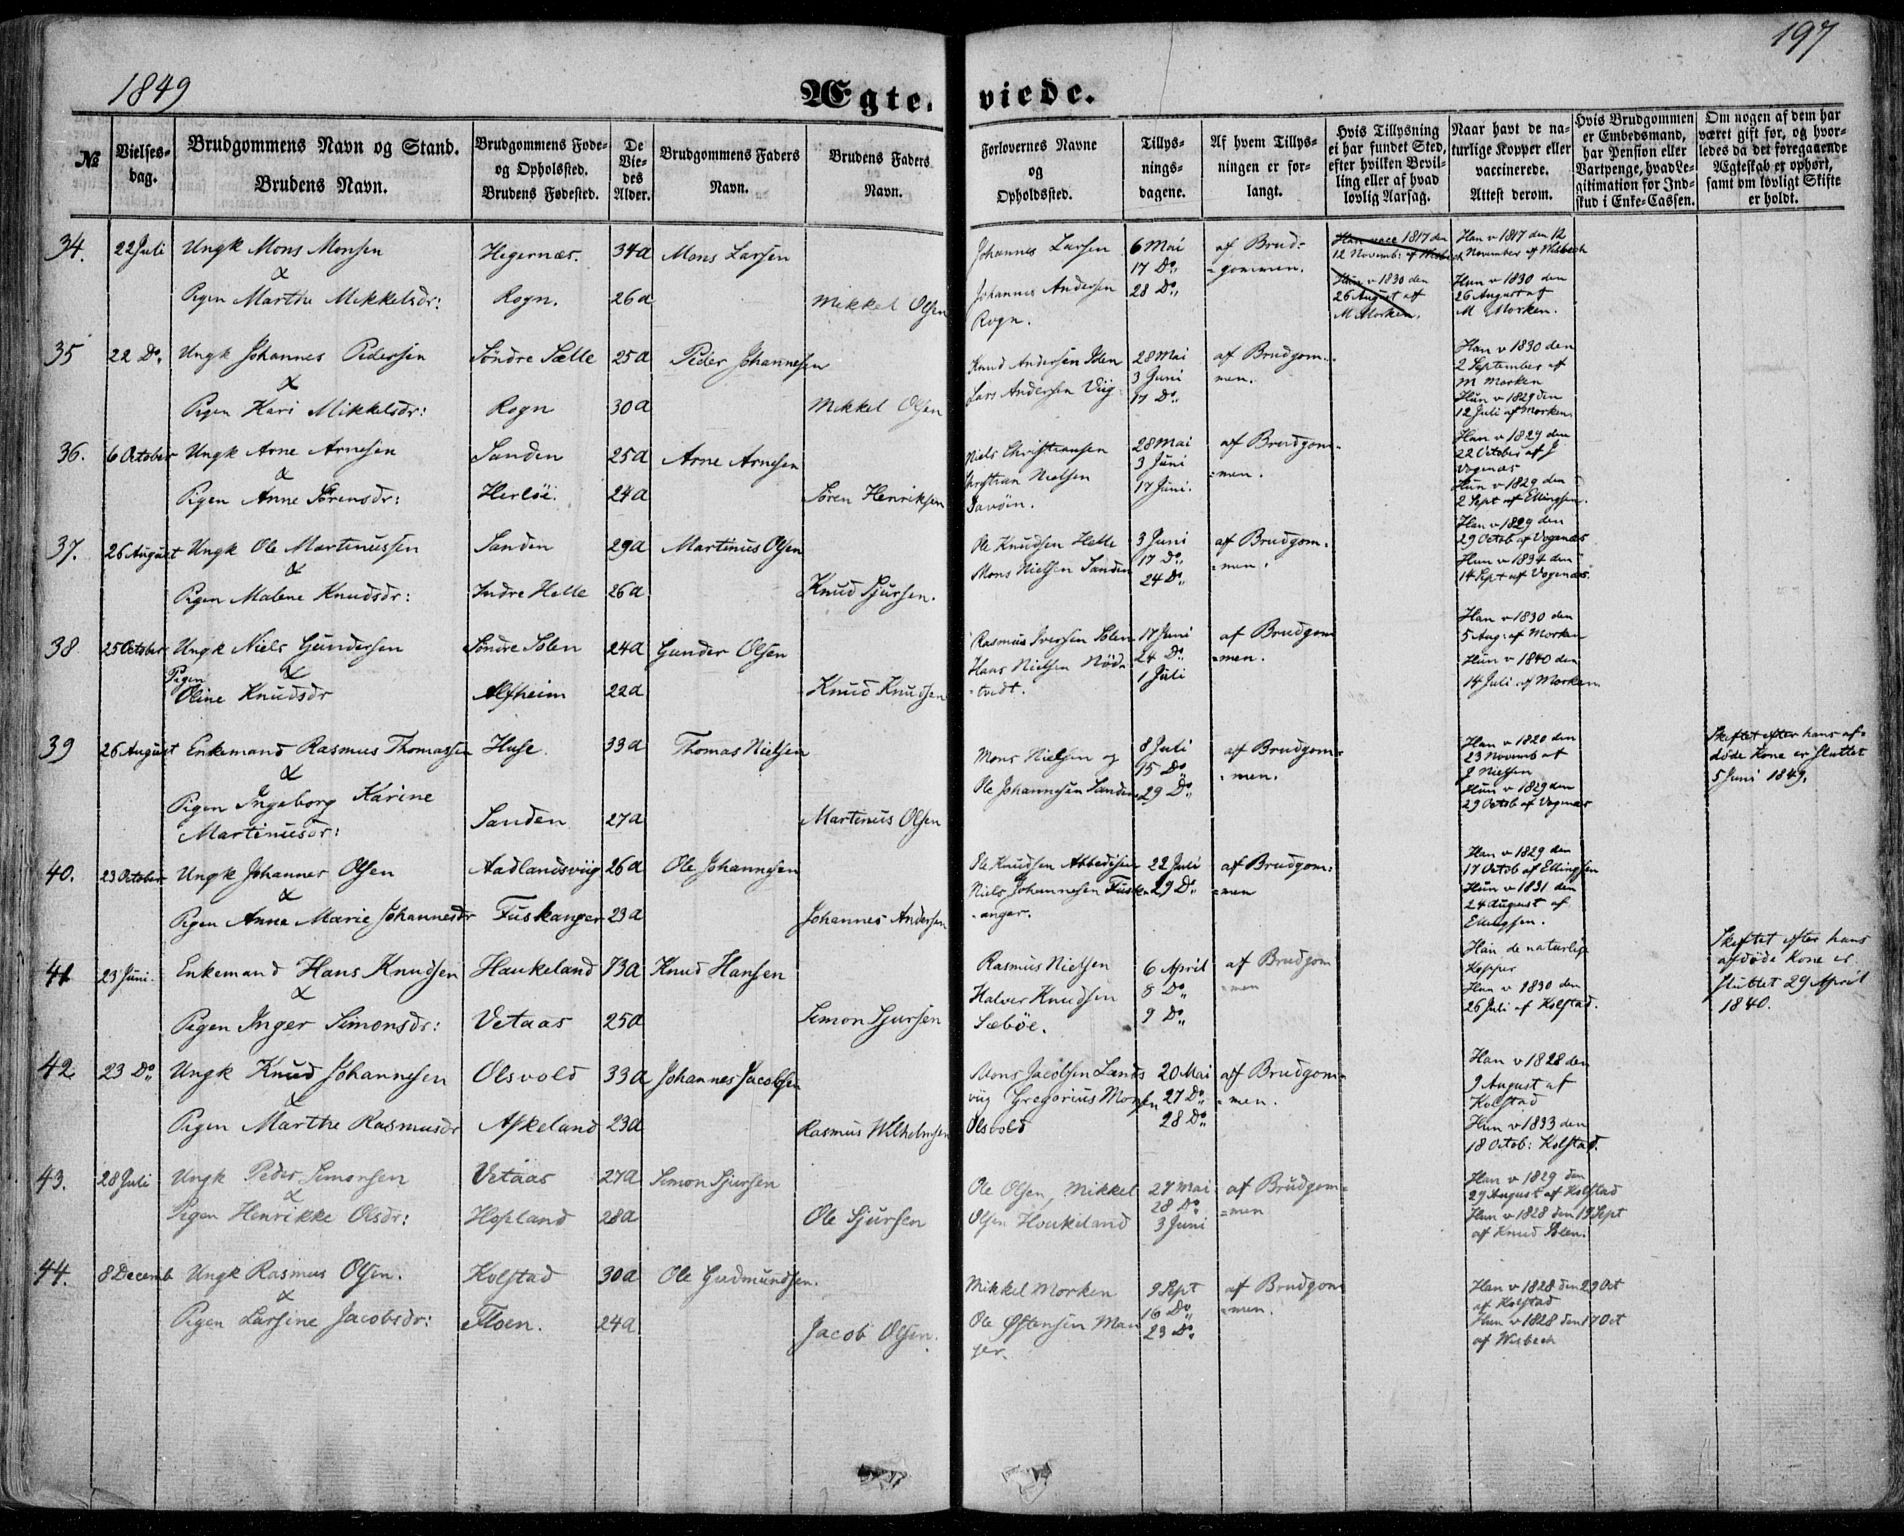 197
1849
Ægte- viede.
№
Vielses-dag.
Brudgommens Navn og Stand.
Brudens Navn.
Brudgommens Føde- og Opholssted.
Brudens Fødested.
De Vie-des Alder.
Brudgommens Faders Navn.
Brudens Faders Navn.
Forlovernes Navne og Opholdssted.
Tillys-nings-dagene.
Af hvem Tillys-ningen er for-langt.
Hvis Tillysning ei har fundet Sted, efter hvilken Bevil-ling eller af hvad lovlig Aarsag.
Naar havt de na-turlige Kopper eller vaccinerede. Attest derom.
Hvis Brudgommen er Embedsmand, har Pension eller Vartpenge, hvad Le-gitimation for Ind-skud i Enke-Cassen.
Om nogen af dem har været gift før, og hvor-ledes da det foregaaende Ægteskab er ophørt, samt om lovligt Skifte er holdt.
34. 22 Juli Ungk Mons Monsen Hegernæs. 34a Mons Larsen
&
Pigen Marthe Mikkelsdr: Rogn. 26a Mikkel Olsen
Johannes Larsen 6 Mai af Brud-
17 Do =gommen.
Johannes Andersen 28 Do
Rogn.
Han vacc 1817 den
12 Novemb: af
Hun v 1830 den
26 August af
M Morken.
Han v 1817 den 12
November af Wisbech
Hun v 1830 den
26 August af
M Morken.
35 22 Do Ungk Johannes Pedersen Söndre Sætte 25a Peder Johannesen
&
Pigen Kari Mikkelsdr: Rogn 30a Mikkel Olsen
Knud Andersen 28 Mai af Brudgom-
Lars Andersen Viig 3 Juni men.
17 Do
Han v 1830 den
2 September af
M Morken
Hun v 1829 den
12 Juli af Morken
36. 6 October Ungk Arne Arnesen Sanden 25a Arne Arnesen
&
Pigen Anne Sörensdr: Herlöe. 24a Sören Henriksen
Niels Christiansen 28 Mai af Brudgom-
Christian Nielsen 3 Juni =men.
17 Juni.
Han v 1829 den
22 October af J
Vogenæs
Hun v 1829 den
2 Sept af Ellingsen.
37. 26 August Ungk Ole Martinussen Sanden 29a Martinus Olsen
&
Pigen Malene Knudsdr: Indre Helle 26a Knud Sjursen.
Ole Knudsen Helle 3 Juni af Brudgom-
Mons Nielsen Sanden 17 Do =men.
24 Do
Han v 1829 den
29 Octob af Vogenæs
Hun v 1834 den
14 Sept af Vogenæs
38 25 October Ungk Niels Gundersen Söndre Solen 24a Gunder Olsen
&
Pigen
Oline Knudsdr Alfheim 22a Knud Knudsen
Rasmus Iversen Solen 17 Juni af Brudgom
Hans Nielsen Nöd- 24 Do =men.
-tvedt. 1 Juli
Han v 1830 den
5 Aug: af Morken
Hun v 1840 den
14 Juli af Morken
39 26 August Enkemand Rasmus Thomassen Huse 33a Thomas Nielsen
&
Pigen Ingeborg Karine
Martinusdr: Sanden 27a Martinus Olsen
Mons Nielsen og 8 Juli af Brudgom-
15 Do =men.
Ole Johannesen Sanden 29 Do
Han v 1820 den
23 Novemb af
J Nielsen
Hun v 1829 den
29 Octob af Vogenæs
Skiftet efter hans af-
døde Kone er sluttet
5 Juni 1849.
40. 23 October Ungk Johannes Olsen Aadlandsviig 26a Ole Johannesen
&
Pigen Anne Marie Johannesdr Fuskanger 23a Johannes Andersen
Ole Knudsen 22 Juli af Brudgom-
Niels Johannesen Fuske- 29 Do =men
-anger.
Han v 1829 den
17 Octob af Ellingsen
Hun v 1831 den
24 August af
Ellingsen.
41 23 Juni Enkemand Hans Knudsen Haukeland 73a Knud Hansen
&
Pigen Inger Simonsdr: Vetaas 25a Simon Sjursen
Rasmus Nielsen 6 April af Brudgom
Halver Knudsen 8 Do =men
Sæböe. 9 Do
Han de naturlige
Kopper
Hun v 1830 den
26 Juli af Kolstad.
Skiftet efter hans
afdøde Kone er
sluttet 29 April
1840.
42 23 Do Ungk Knud Johannesen Olsvold 33a Johannes Jacobsen
&
Pigen Marthe Rasmusdr Askeland 23a Rasmus Wilhelmsen
Mons Jacobsen Lands 20 Mai af Brudgom-
viig Gregorius Monsen 27 Do =men.
Olsvold 28 Do
Han v 1828 den
9 August af
Kolstad
Hun v 1833 den
18 Octob: Kolstad.
43. 28 Juli Ungk Peder Simonsen Vetaas 27a Simon Sjursen
&
Pigen Henrikke Olsdr: Hopland 28a Ole Sjursen
Ole Olsen, Mikkel 27 Mai af Brudgom-
28 Do =men
Olsen Houkeland 3 Juni
Han v 1829 den
29 August af Kolstad
Hun v 1828 den 19 Sept
af Knud Solen.
44. 8 Decemb Ungk Rasmus Olsen. Kolstad 30a Ole Gudmundsen.
&
Pigen Larsine Jacobsdr: Floen. 24a Jacob Olsen.
Mikkel Morken 9 Sept af Brudgom
16 Do =men.
Ole Østensen Man 23 Do
ger.
Han v 1828 den 29 Oct
af Kolstad
Hun v 1828 den 17 Oct
af Wisbech